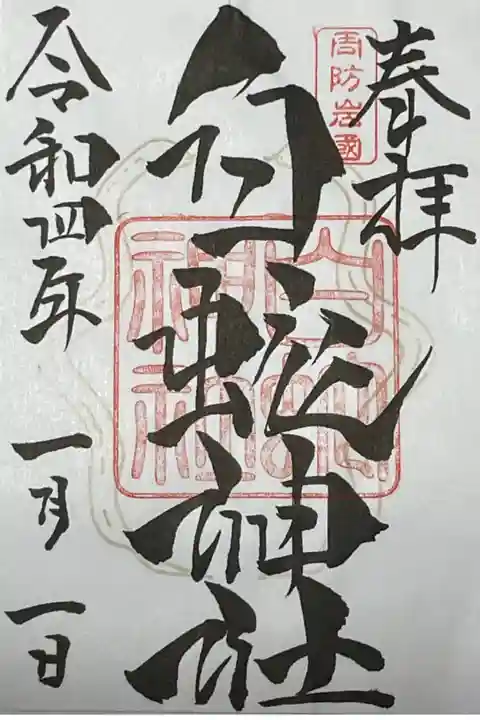 奉拝
周防岩國
白蛇神社
白蛇神社
令和四年 一月 一日